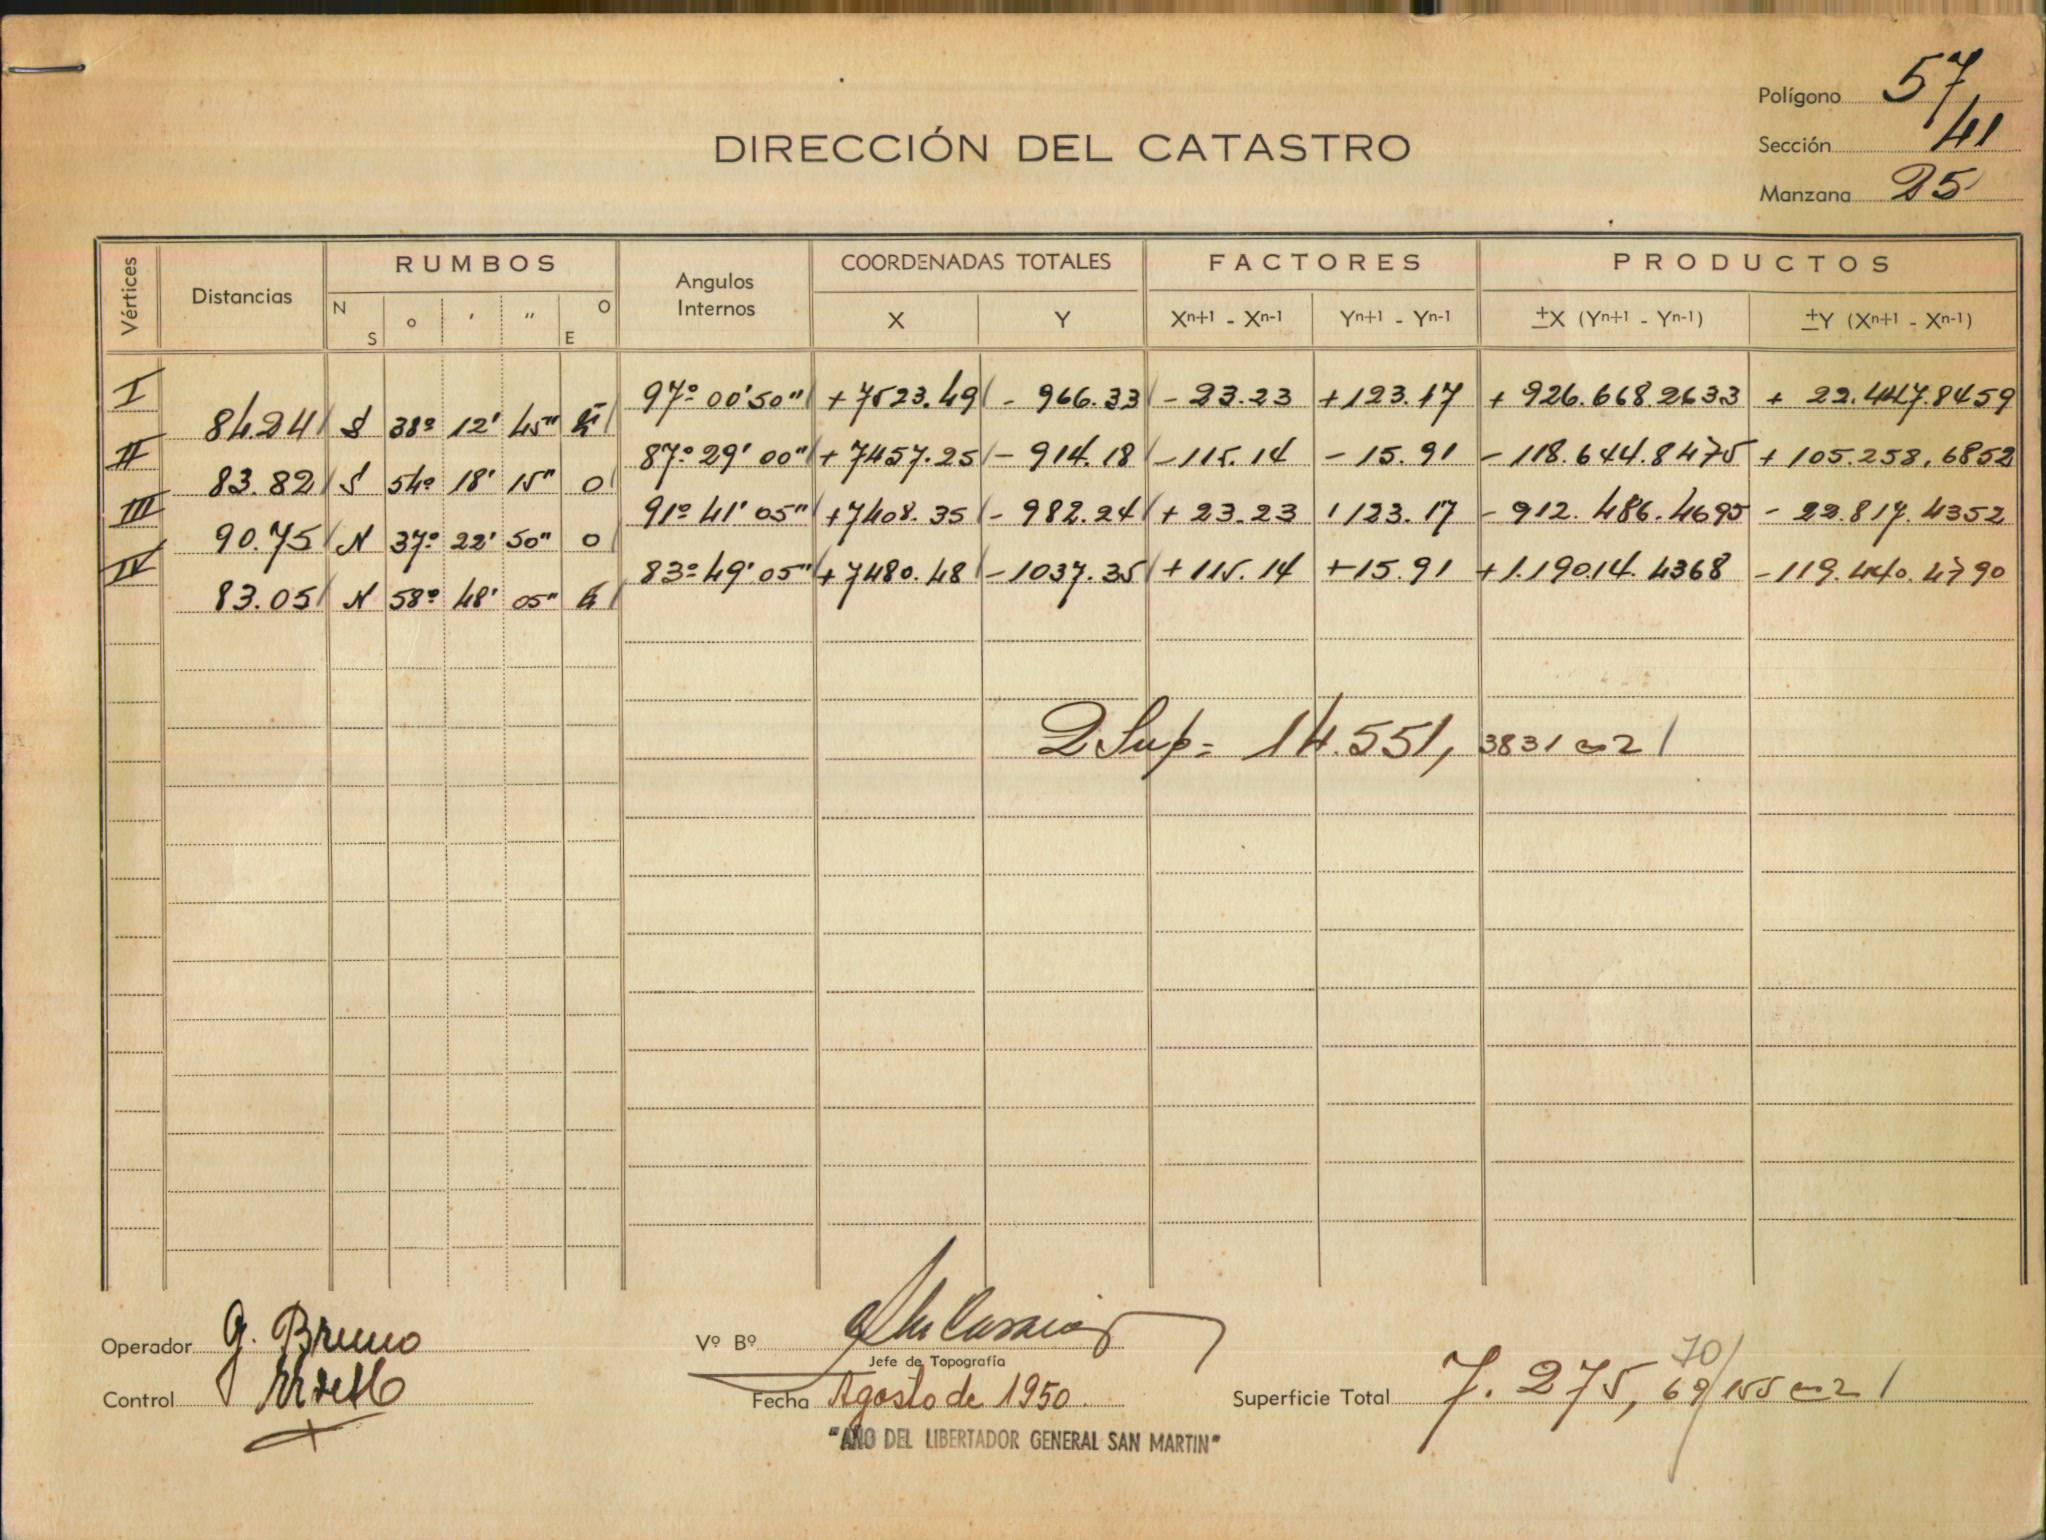 Polígono 57
DIRECCIÓN DEL CATASTRO
Sección 41
Manzana 25
Vértices Distancias RUMBOS Angulos Internos COORDENADAS TOTALES FACTORES PRODUCTOS
N S o ' " O E X Y Xn+1 - Xn-1 Yn+1 - Yn-1 ±X (Yn+1 - Yn-1) ±Y (Xn+1 - Xn-1)
I 97º 00' 50" +7523.49 - 966.33 - 23.23 +123.17 + 926.668.2633 + 22.447.8459
84.24 S 38º 12' 45" E
II 87º 29' 00" + 7457.25 - 914.18 - 115.14 - 15.91 - 118.644.8475 + 105.258.6852
83.82 S 54º 18' 15" O
III 91º 41' 05" +7408.35 - 982.24 + 23.23 123.17 - 912.486.4695 - 22.817.4352
90.75 N 37º 22' 50" O
IV 83º 49' 05" + 7480.48 - 1037.35 + 115.14 +15.91 +1.19014.4368 - 119.440.4790
83.05 N 58º 48' 05" E
2 Sup = 14.551, 3831 m2
Operador G. Bruno
Vº Bº
Jefe de Topografía
Control
Fecha Agosto de 1950.
Superficie Total 7.275, 69155 m2
70
"AÑO DEL LIBERTADOR GENERAL SAN MARTIN"